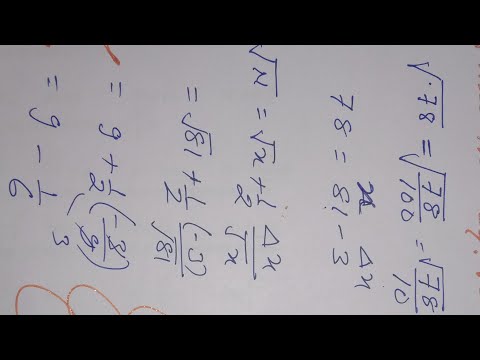 √.78 = √78/100 = √78/10
78 = 81 - 3
x Δx
√N = √x + 1/2 Δx/√x
= √81 + 1/2 (-3)/√81
= 9 + 1/2 (-3/9) 3
= 9 - 1/6